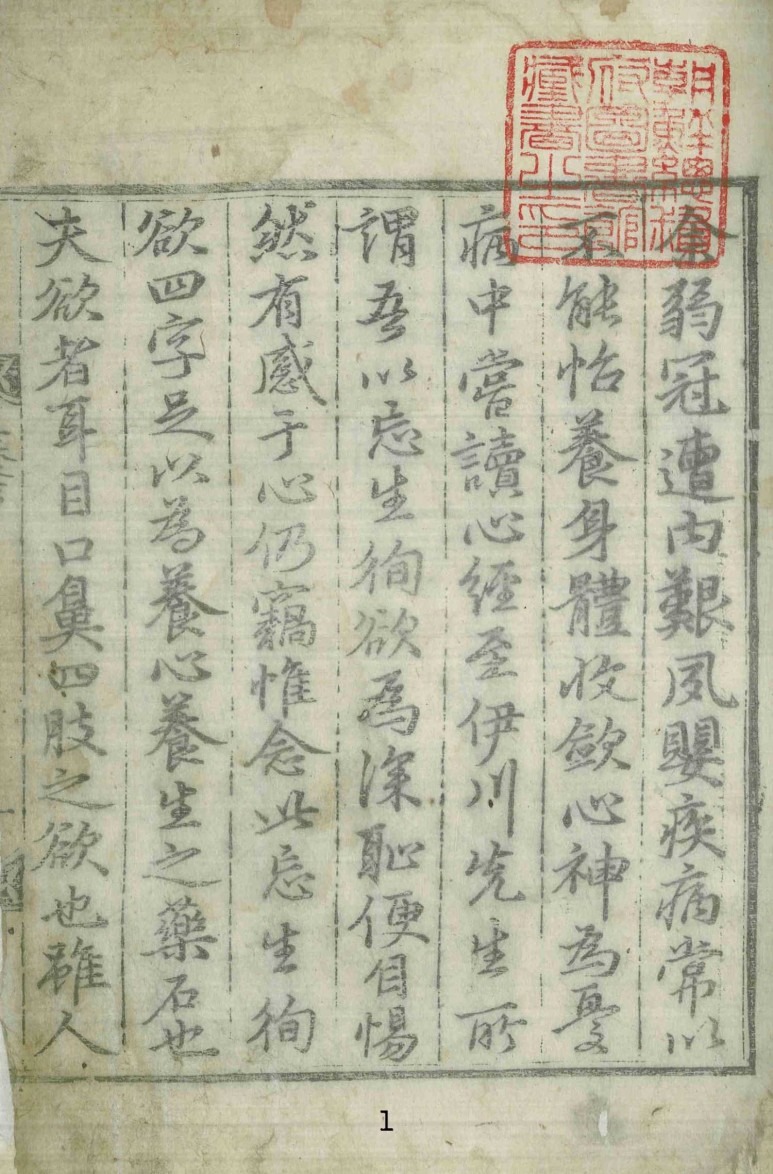 余弱冠遭內艱夙嬰疾病常以
不能怡養身體收斂心神為憂
病中嘗讀心經至伊川先生所
謂吾以忘生徇欲為深恥便自惕
然有感于心仍竊惟念此忘生徇
欲四字足以為養心養生之藥石也
夫欲者耳目口鼻四肢之欲也雖人
朝鮮總督
府圖書館
藏書之印
1